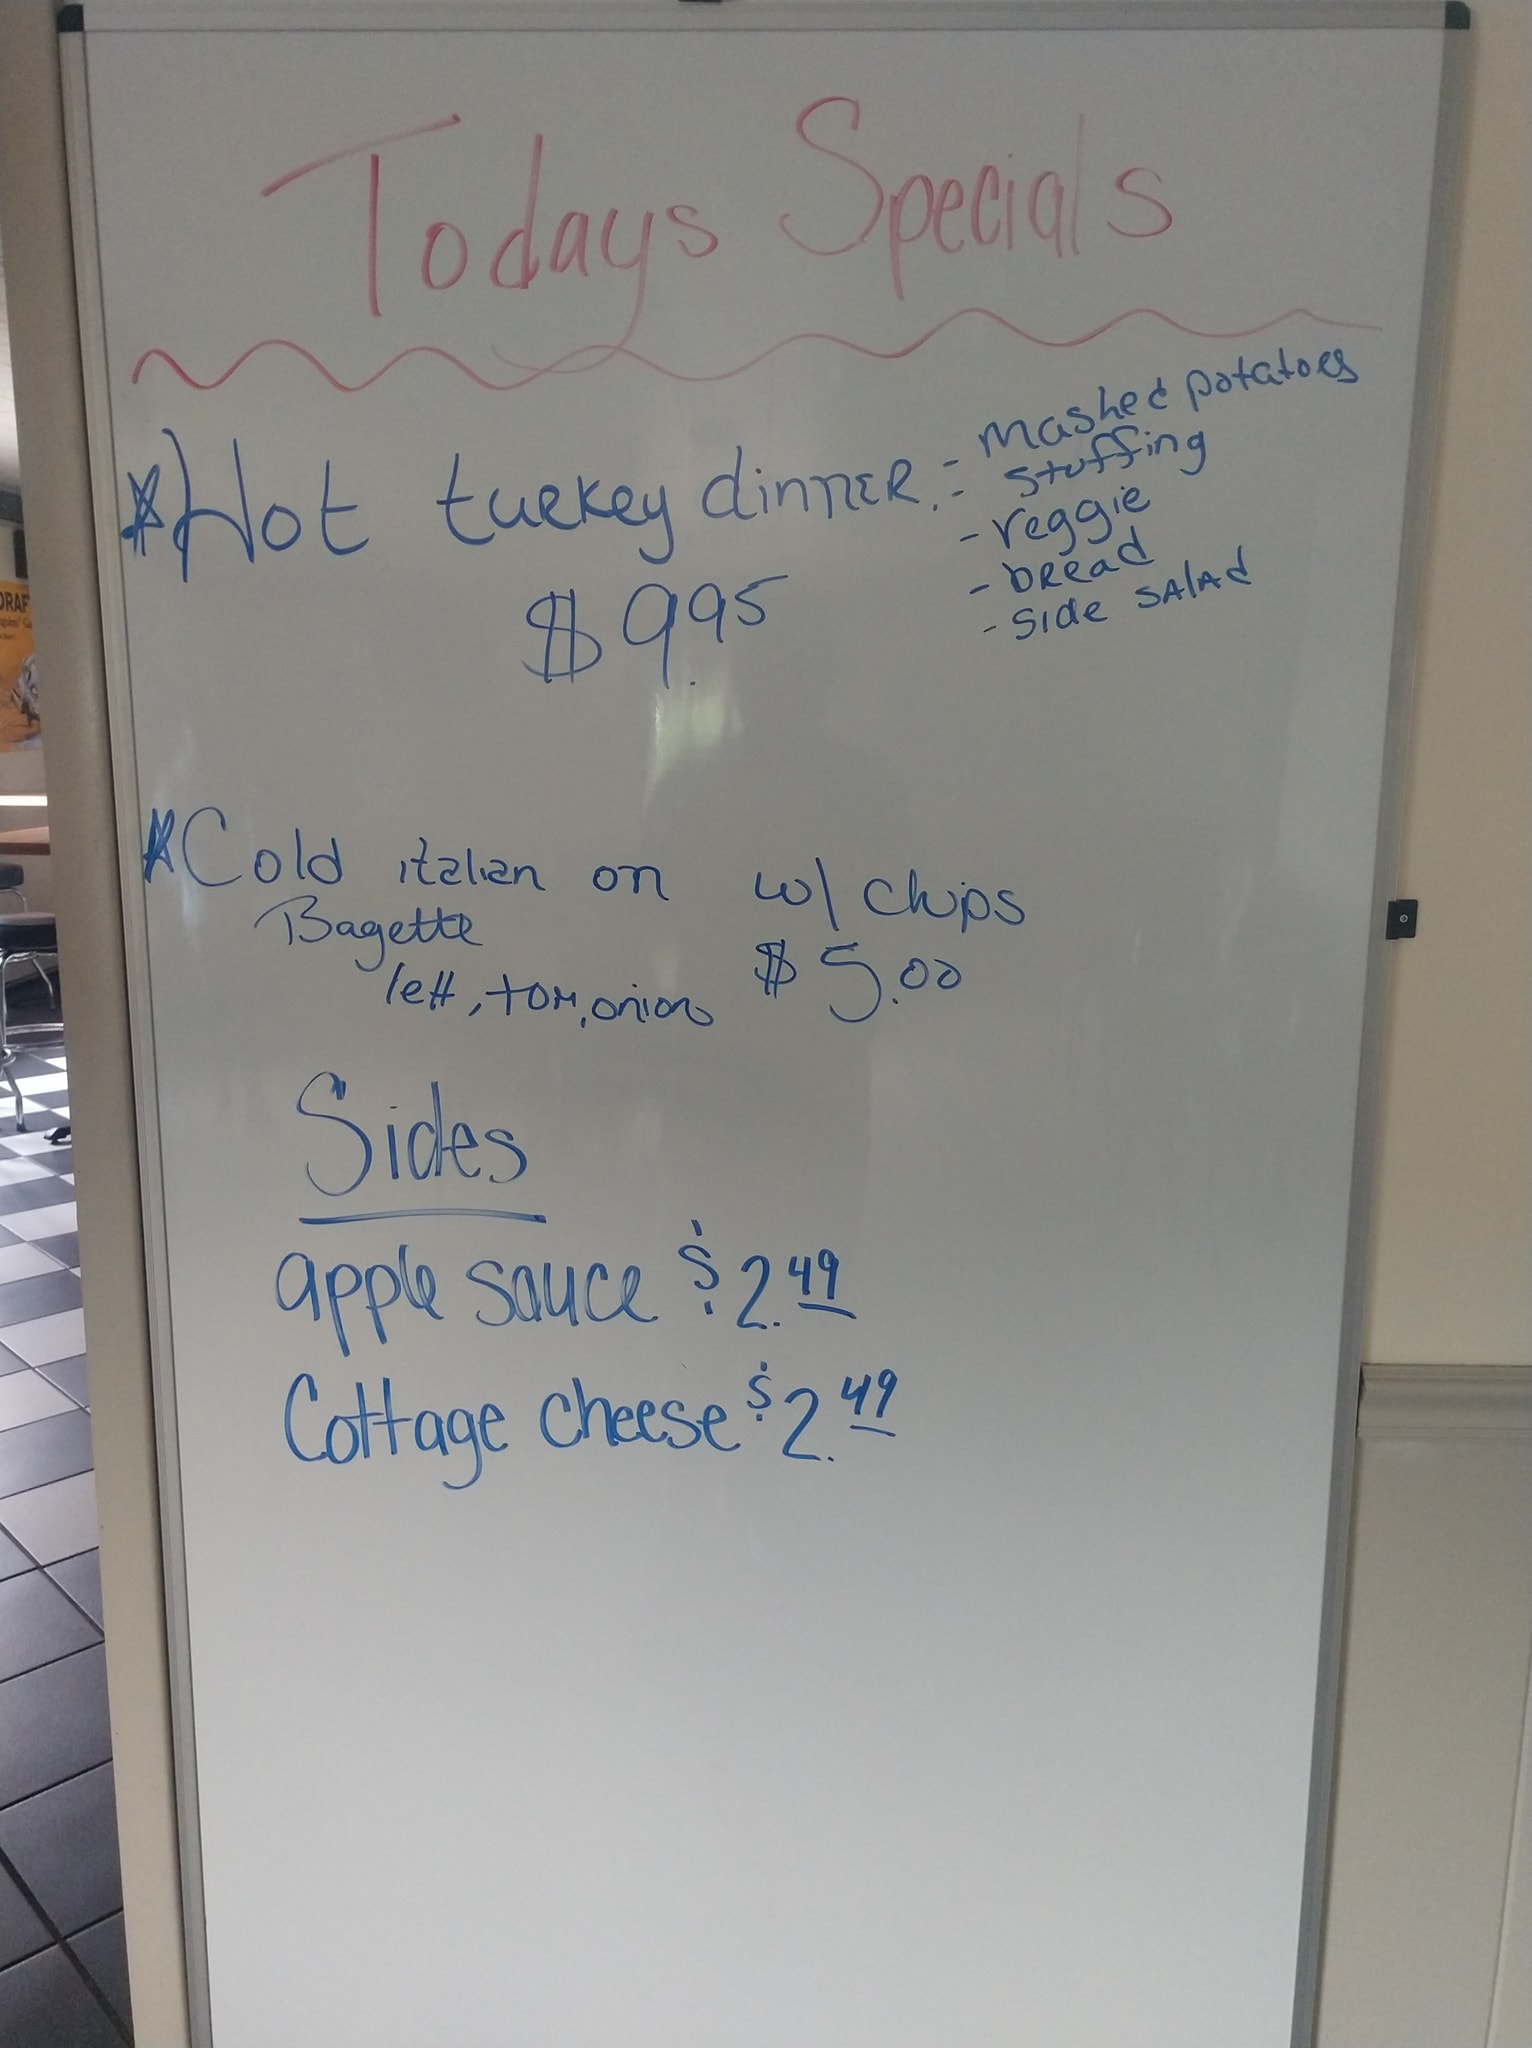 Todays Specials
Hot turkey dinner. - mashed potatoes
- stuffing
- veggie
- bread
- side salad
$9.95
Cold italian on w/ chips
Bagette
lett, tom, onion $5.00
Sides
apple sauce $2.49
Cottage cheese $2.49
DRAF